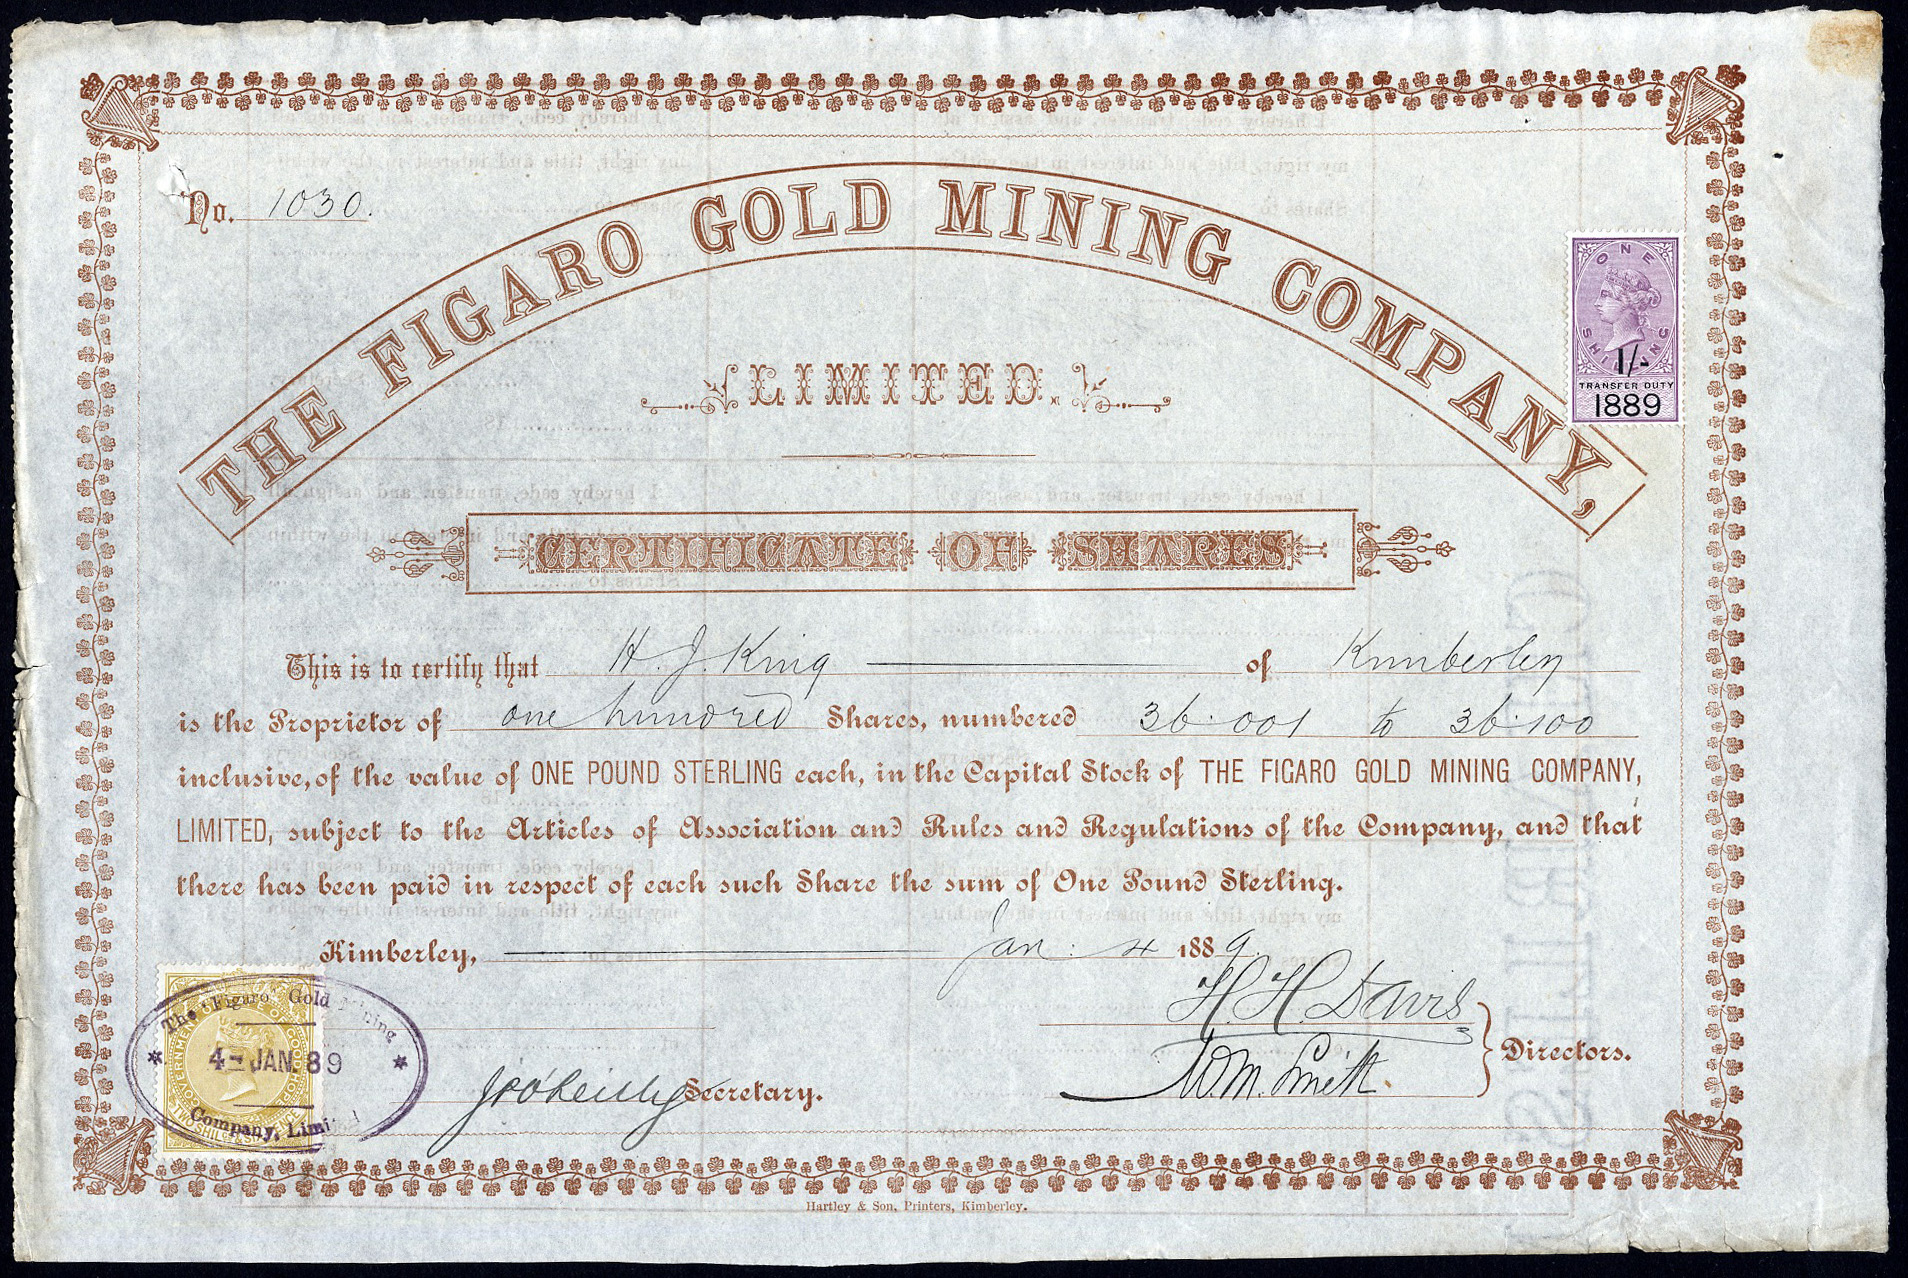 No. 1030.
THE FIGARO GOLD MINING COMPANY,
LIMITED.
ONE SHILLING
1/-
TRANSFER DUTY
1889
CERTIFICATE OF SHARES
This is to certify that H. J. King of Kimberley
is the Proprietor of one hundred Shares, numbered 36.001 to 36.100
inclusive, of the value of ONE POUND STERLING each, in the Capital Stock of THE FIGARO GOLD MINING COMPANY,
LIMITED, subject to the Articles of Association and Rules and Regulations of the Company, and that
there has been paid in respect of each such Share the sum of One Pound Sterling.
Kimberley, Jan: 4 1889.
H. H. Davis
W. M. Smith.
Directors.
J P O'Reilly Secretary.
The "Figaro" Gold Mining
4- JAN. 89
Company, Limited
Hartley & Son, Printers, Kimberley.